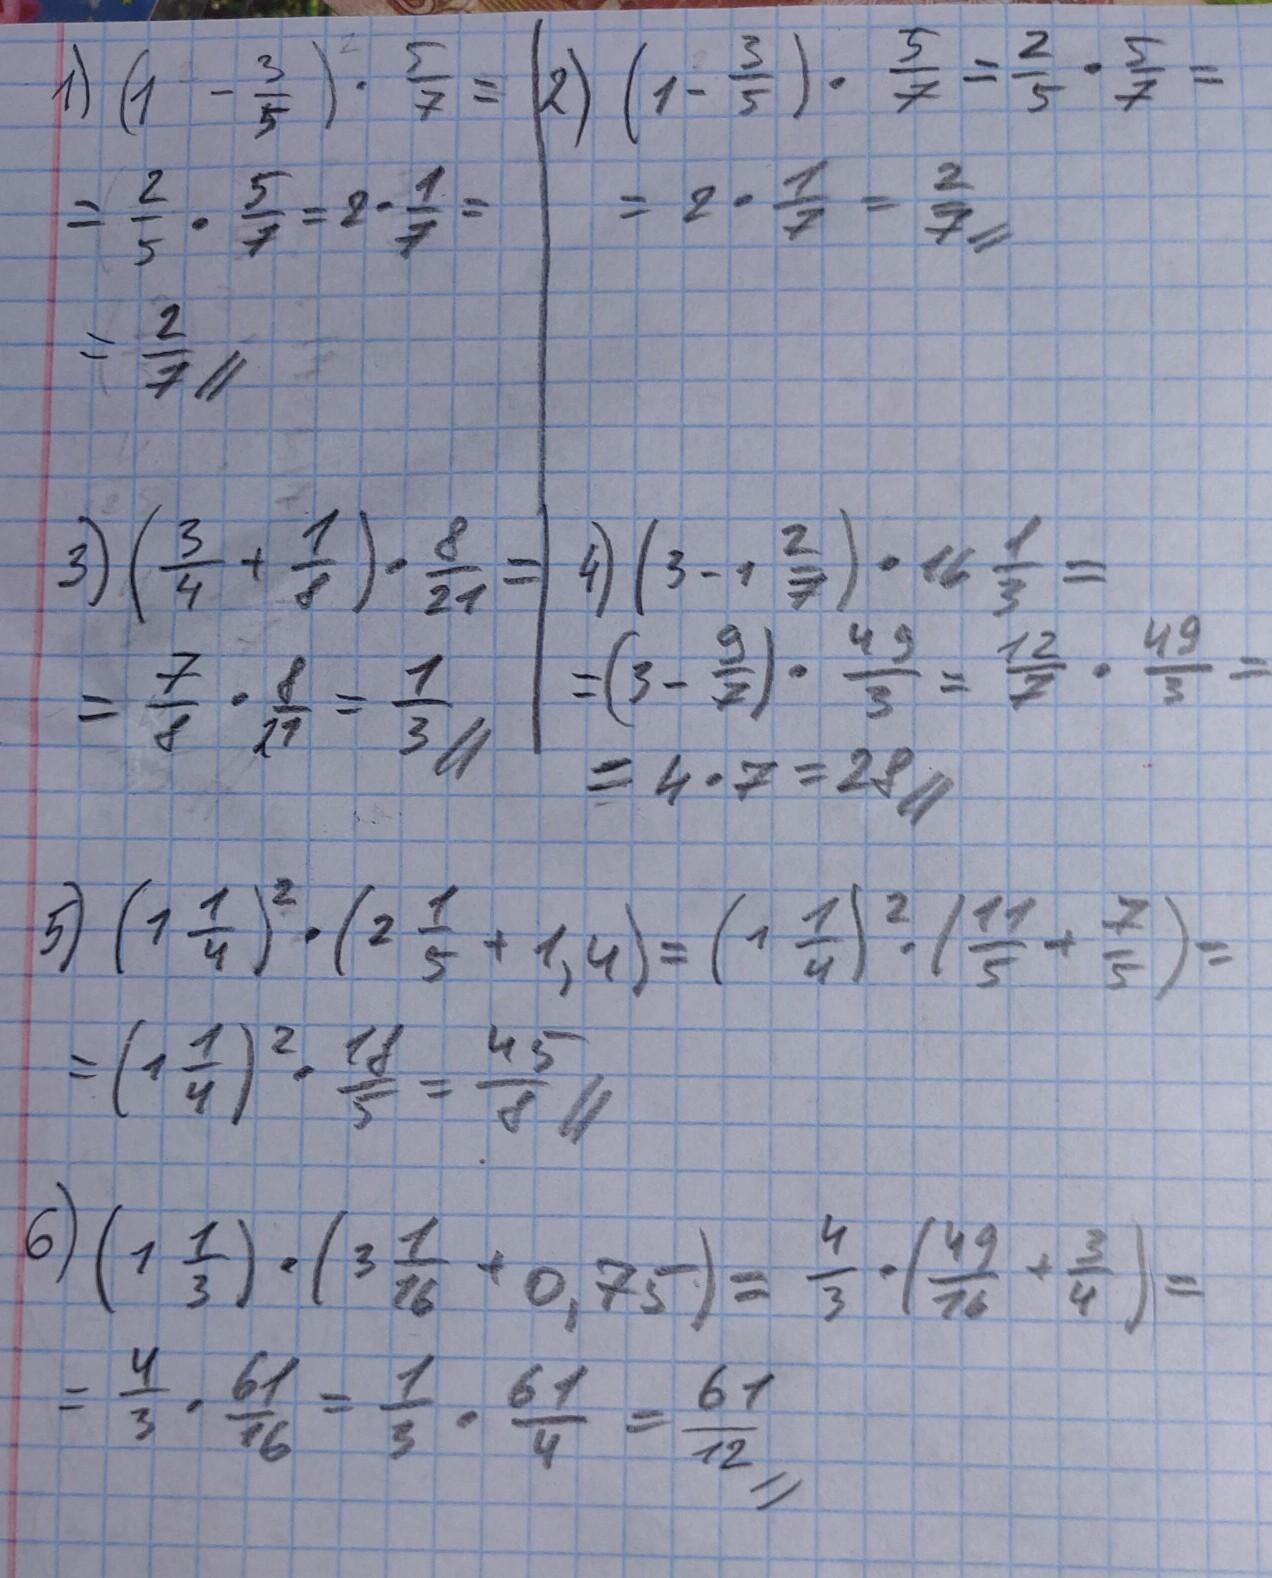 1) (1 - 3/5) · 5/7 =
= 2/5 · 5/7 = 2 · 1/7 =
= 2/7 //
2) (1 - 3/5) · 5/7 = 2/5 · 5/7 =
= 2 · 1/7 = 2/7 //
3) (3/4 + 1/8) · 8/21 =
= 7/8 · 8/21 = 1/3 //
4) (3 - 1 2/7) · 16 1/3 =
= (3 - 9/7) · 49/3 = 12/7 · 49/3 =
= 4 · 7 = 28 //
5) (1 1/4)² · (2 1/5 + 1,4) = (1 1/4)² · (11/5 + 7/5) =
= (1 1/4)² · 18/5 = 45/8 //
6) (1 1/3) · (3 1/16 + 0,75) = 4/3 · (49/16 + 3/4) =
= 4/3 · 61/16 = 1/3 · 61/4 = 61/12 //